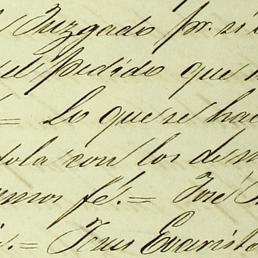 Juzgado pr. si
el pedido que
= Lo que se hac
dola con los dem
mos fé.= José
= Jesus Evaristo